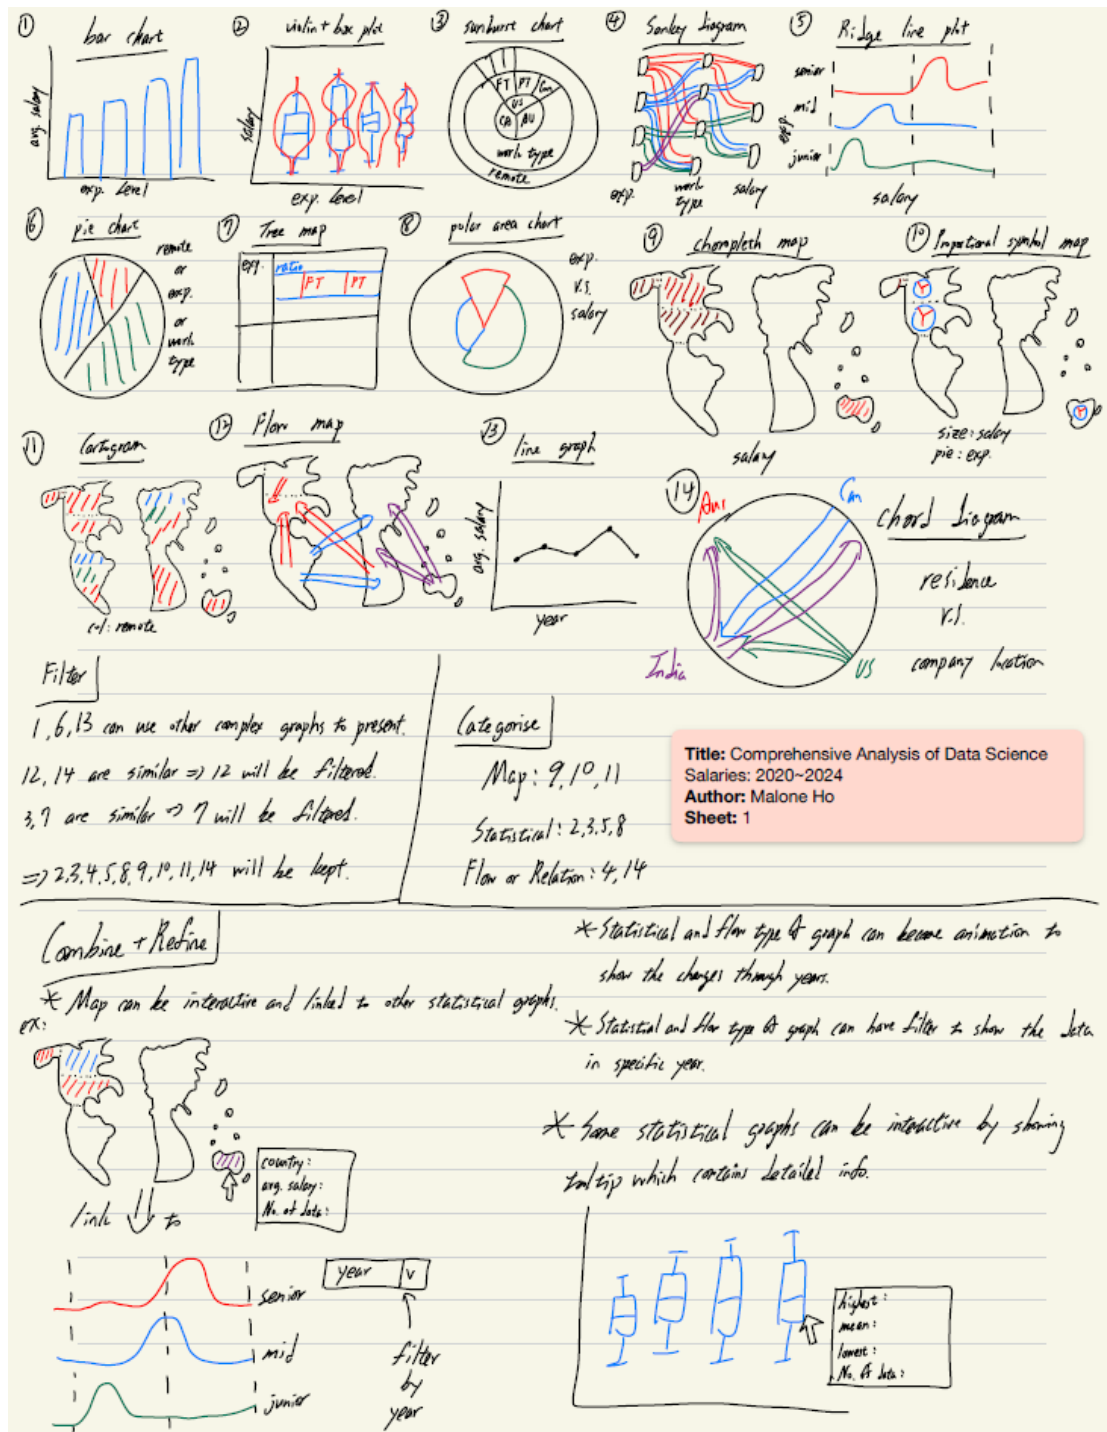 ① bar chart
avg. salary
exp. level
② violin + box plot
salary
exp. level
③ sunburst chart
FT PT Con
US
CA AU
work type
remote
④ Sankey diagram
exp.
work type
salary
⑤ Ridge line plot
senior
mid
junior
exp.
salary
⑥ pie chart
remote
or
exp.
or
work
type
⑦ Tree map
exp.
ratio
FT PT
⑧ polar area chart
exp.
v.s.
salary
⑨ choropleth map
salary
⑩ Proportional symbol map
size: salary
pie: exp.
⑪ Cartogram
col: remote
⑫ Flow map
⑬ line graph
avg. salary
year
⑭ Chord diagram
Aus
Can
India
US
residence
v.s.
company location
Filter
1, 6, 13 can use other complex graphs to present.
12, 14 are similar => 12 will be filtered.
3, 7 are similar => 7 will be filtered.
=> 2,3,4,5,8,9,10,11,14 will be kept.
Categorise
Map: 9,10,11
Statistical: 2,3,5,8
Flow or Relation: 4,14
Title: Comprehensive Analysis of Data Science
Salaries: 2020~2024
Author: Malone Ho
Sheet: 1
Combine + Refine
* Map can be interactive and linked to other statistical graphs.
ex:
country:
avg. salary:
No. of data:
link to
senior
mid
junior
year v
filter
by
year
* Statistical and flow type of graph can become animation to
show the changes through years.
* Statistical and flow type of graph can have filter to show the data
in specific year.
* Some statistical graphs can be interactive by showing
tooltip which contains detailed info.
highest:
mean:
lowest:
No. of data: